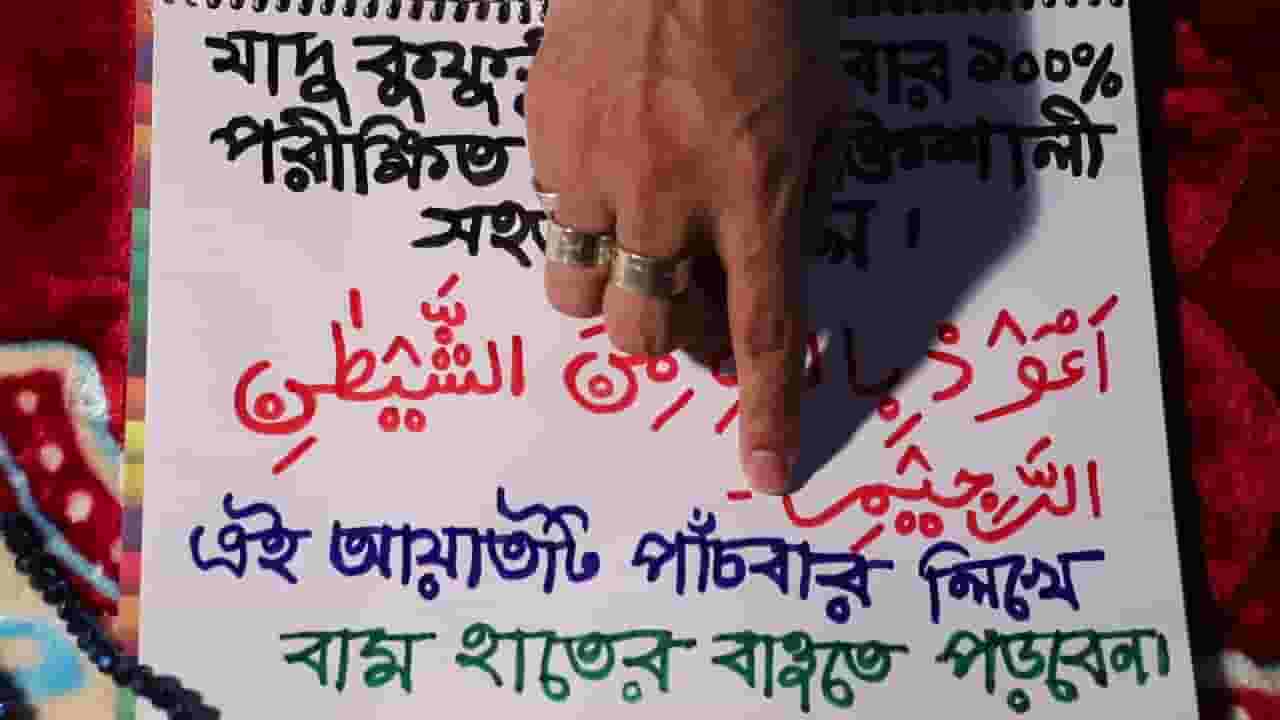 যাদু কুফুরী বার ১০০%
পরীক্ষিত শালী
।
اَعُوْذُ مِنَ الشَّيْطٰنِ
الرَّجِيْمِ
এই আয়াতটি পাঁচবার লিখে
বাম হাতের বাহুতে পড়বেন।